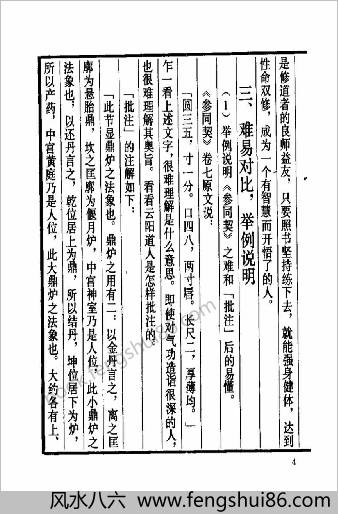 是修道者的良师益友，只要照书坚持练下去，就能强身健体，达到
性命双修，成为一个有智慧而开悟了的人。
三、难易对比，举例说明
（1）举例说明《参同契》之难和「批注」后的易懂。
《参同契》卷七原文说：
「圆三五，寸一分。口四八，两寸唇。长尺二，厚薄均。」
乍一看上述文字，很难理解是什么意思。即使对气功造诣很深的人，
也很难理解其奥旨。看看云阳道人是怎样批注的。
「批注」的注解如下：
「此节显鼎炉之法象也。鼎炉之用有二：以金丹言之，离之匡
廓为悬胎鼎，坎之匡廓为偃月炉，中宫神室乃是人位，此小鼎炉之
法象也，以还丹言之，乾位居上为鼎，所以结丹，坤位居下为炉，
所以产药，中宫黄庭乃是人位，此大鼎炉之法象也。大约各有上、
4
www.fengshui86.com
风水八六 www.fengshui86.com